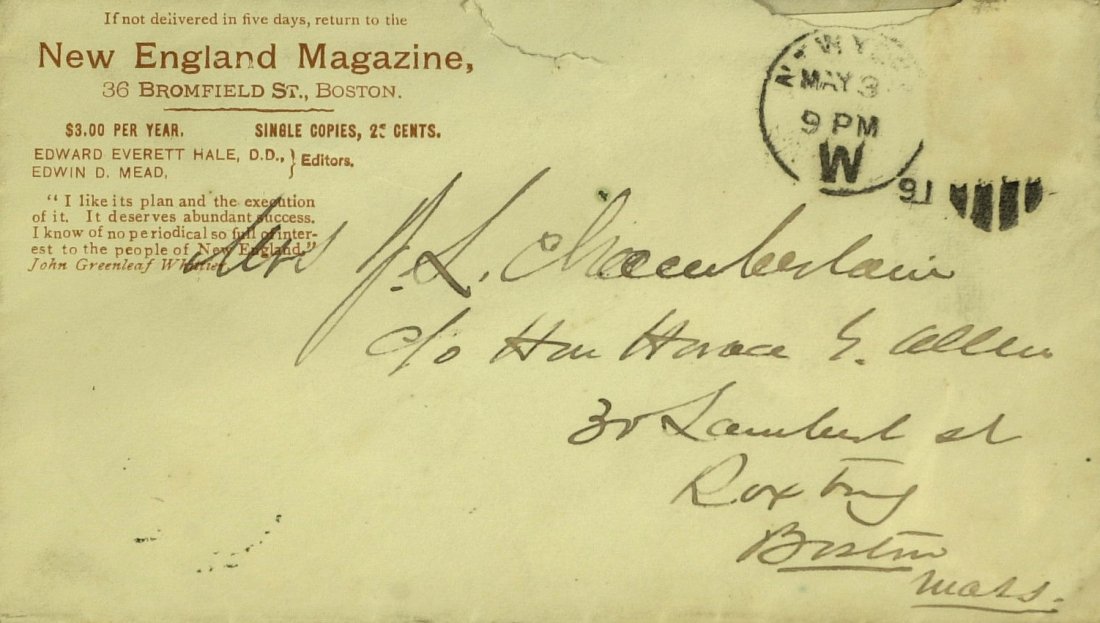 If not delivered in five days, return to the
New England Magazine,
36 BROMFIELD ST., BOSTON.
$3.00 PER YEAR. SINGLE COPIES, 25 CENTS.
EDWARD EVERETT HALE, D.D., } Editors.
EDWIN D. MEAD,
"I like its plan and the execution
of it. It deserves abundant success.
I know of no periodical so full of inter-
est to the people of New England."
John Greenleaf Whittier
NEW YORK
MAY 3
9 PM
W
91
Mrs J. L. Chamberlain
c/o Hon Horace G. Allen
30 Lambert st
Roxbury
Boston
Mass.